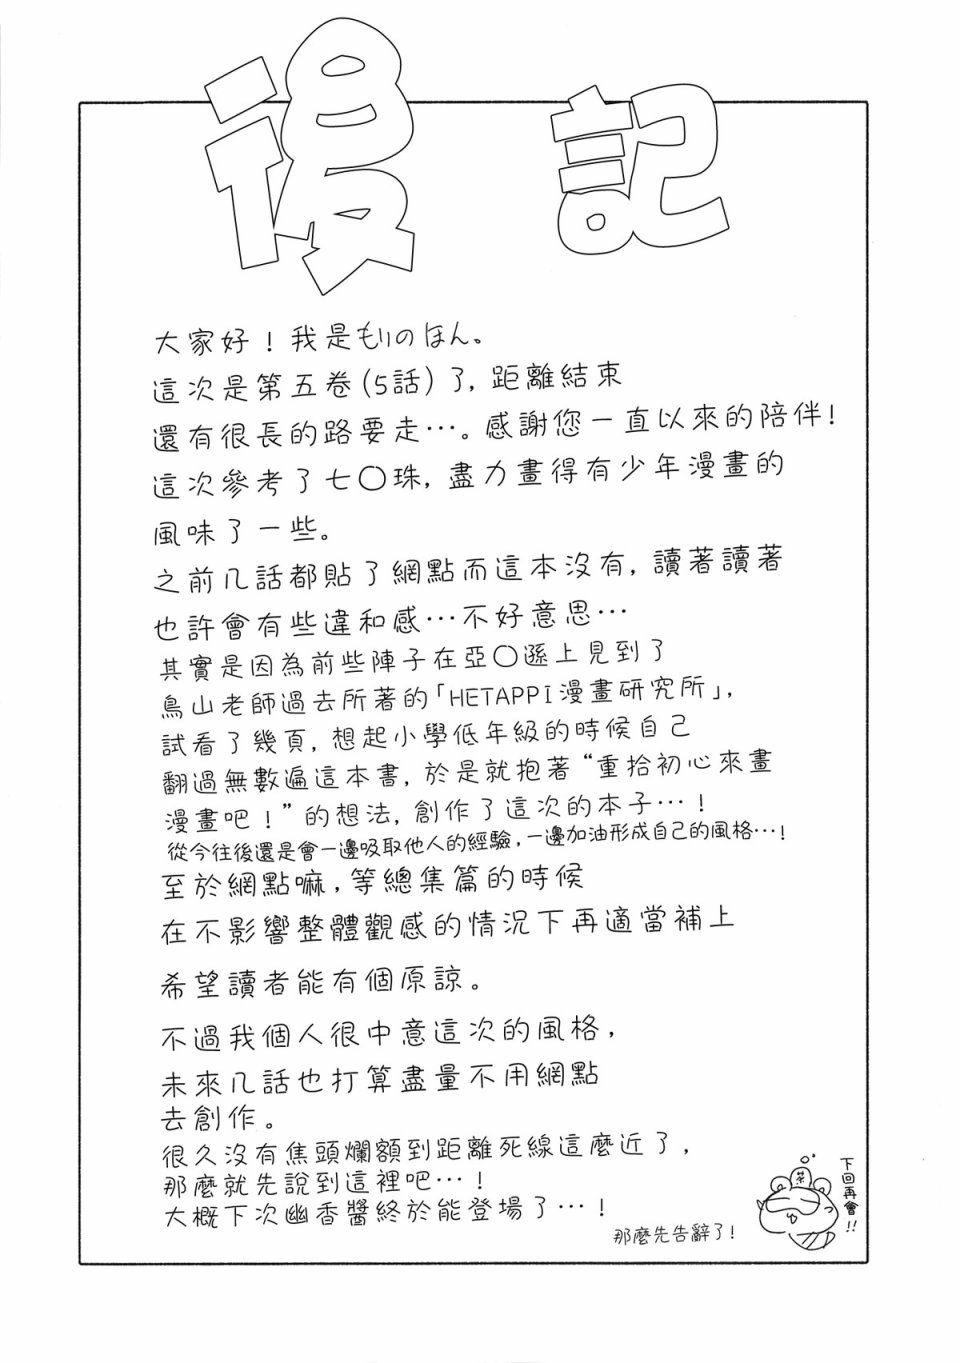 後記
大家好！我是もりのほん。
這次是第五卷(5話)了，距離結束
還有很長的路要走…。感謝您一直以來的陪伴！
這次參考了七〇珠，盡力畫得有少年漫畫的
風味了一些。
之前几話都貼了網點而這本沒有，讀著讀著
也許會有些違和感…不好意思…
其實是因為前些陣子在亞〇遜上見到了
鳥山老師過去所著的「HETAPPI漫畫研究所」，
試看了幾頁，想起小學低年級的時候自己
翻過無數遍這本書，於是就抱著“重拾初心來畫
漫畫吧！”的想法，創作了這次的本子…！
從今往後還是會一邊吸取他人的經驗，一邊加油形成自己的風格…！
至於網點嘛，等總集篇的時候
在不影響整體觀感的情況下再適當補上
希望讀者能有個原諒。
不過我個人很中意這次的風格，
未來几話也打算盡量不用網點
去創作。
很久沒有焦頭爛額到距離死線這麼近了，
那麼就先說到這裡吧…！
大概下次幽香醬終於能登場了…！
那麼先告辭了！
下回再會！！